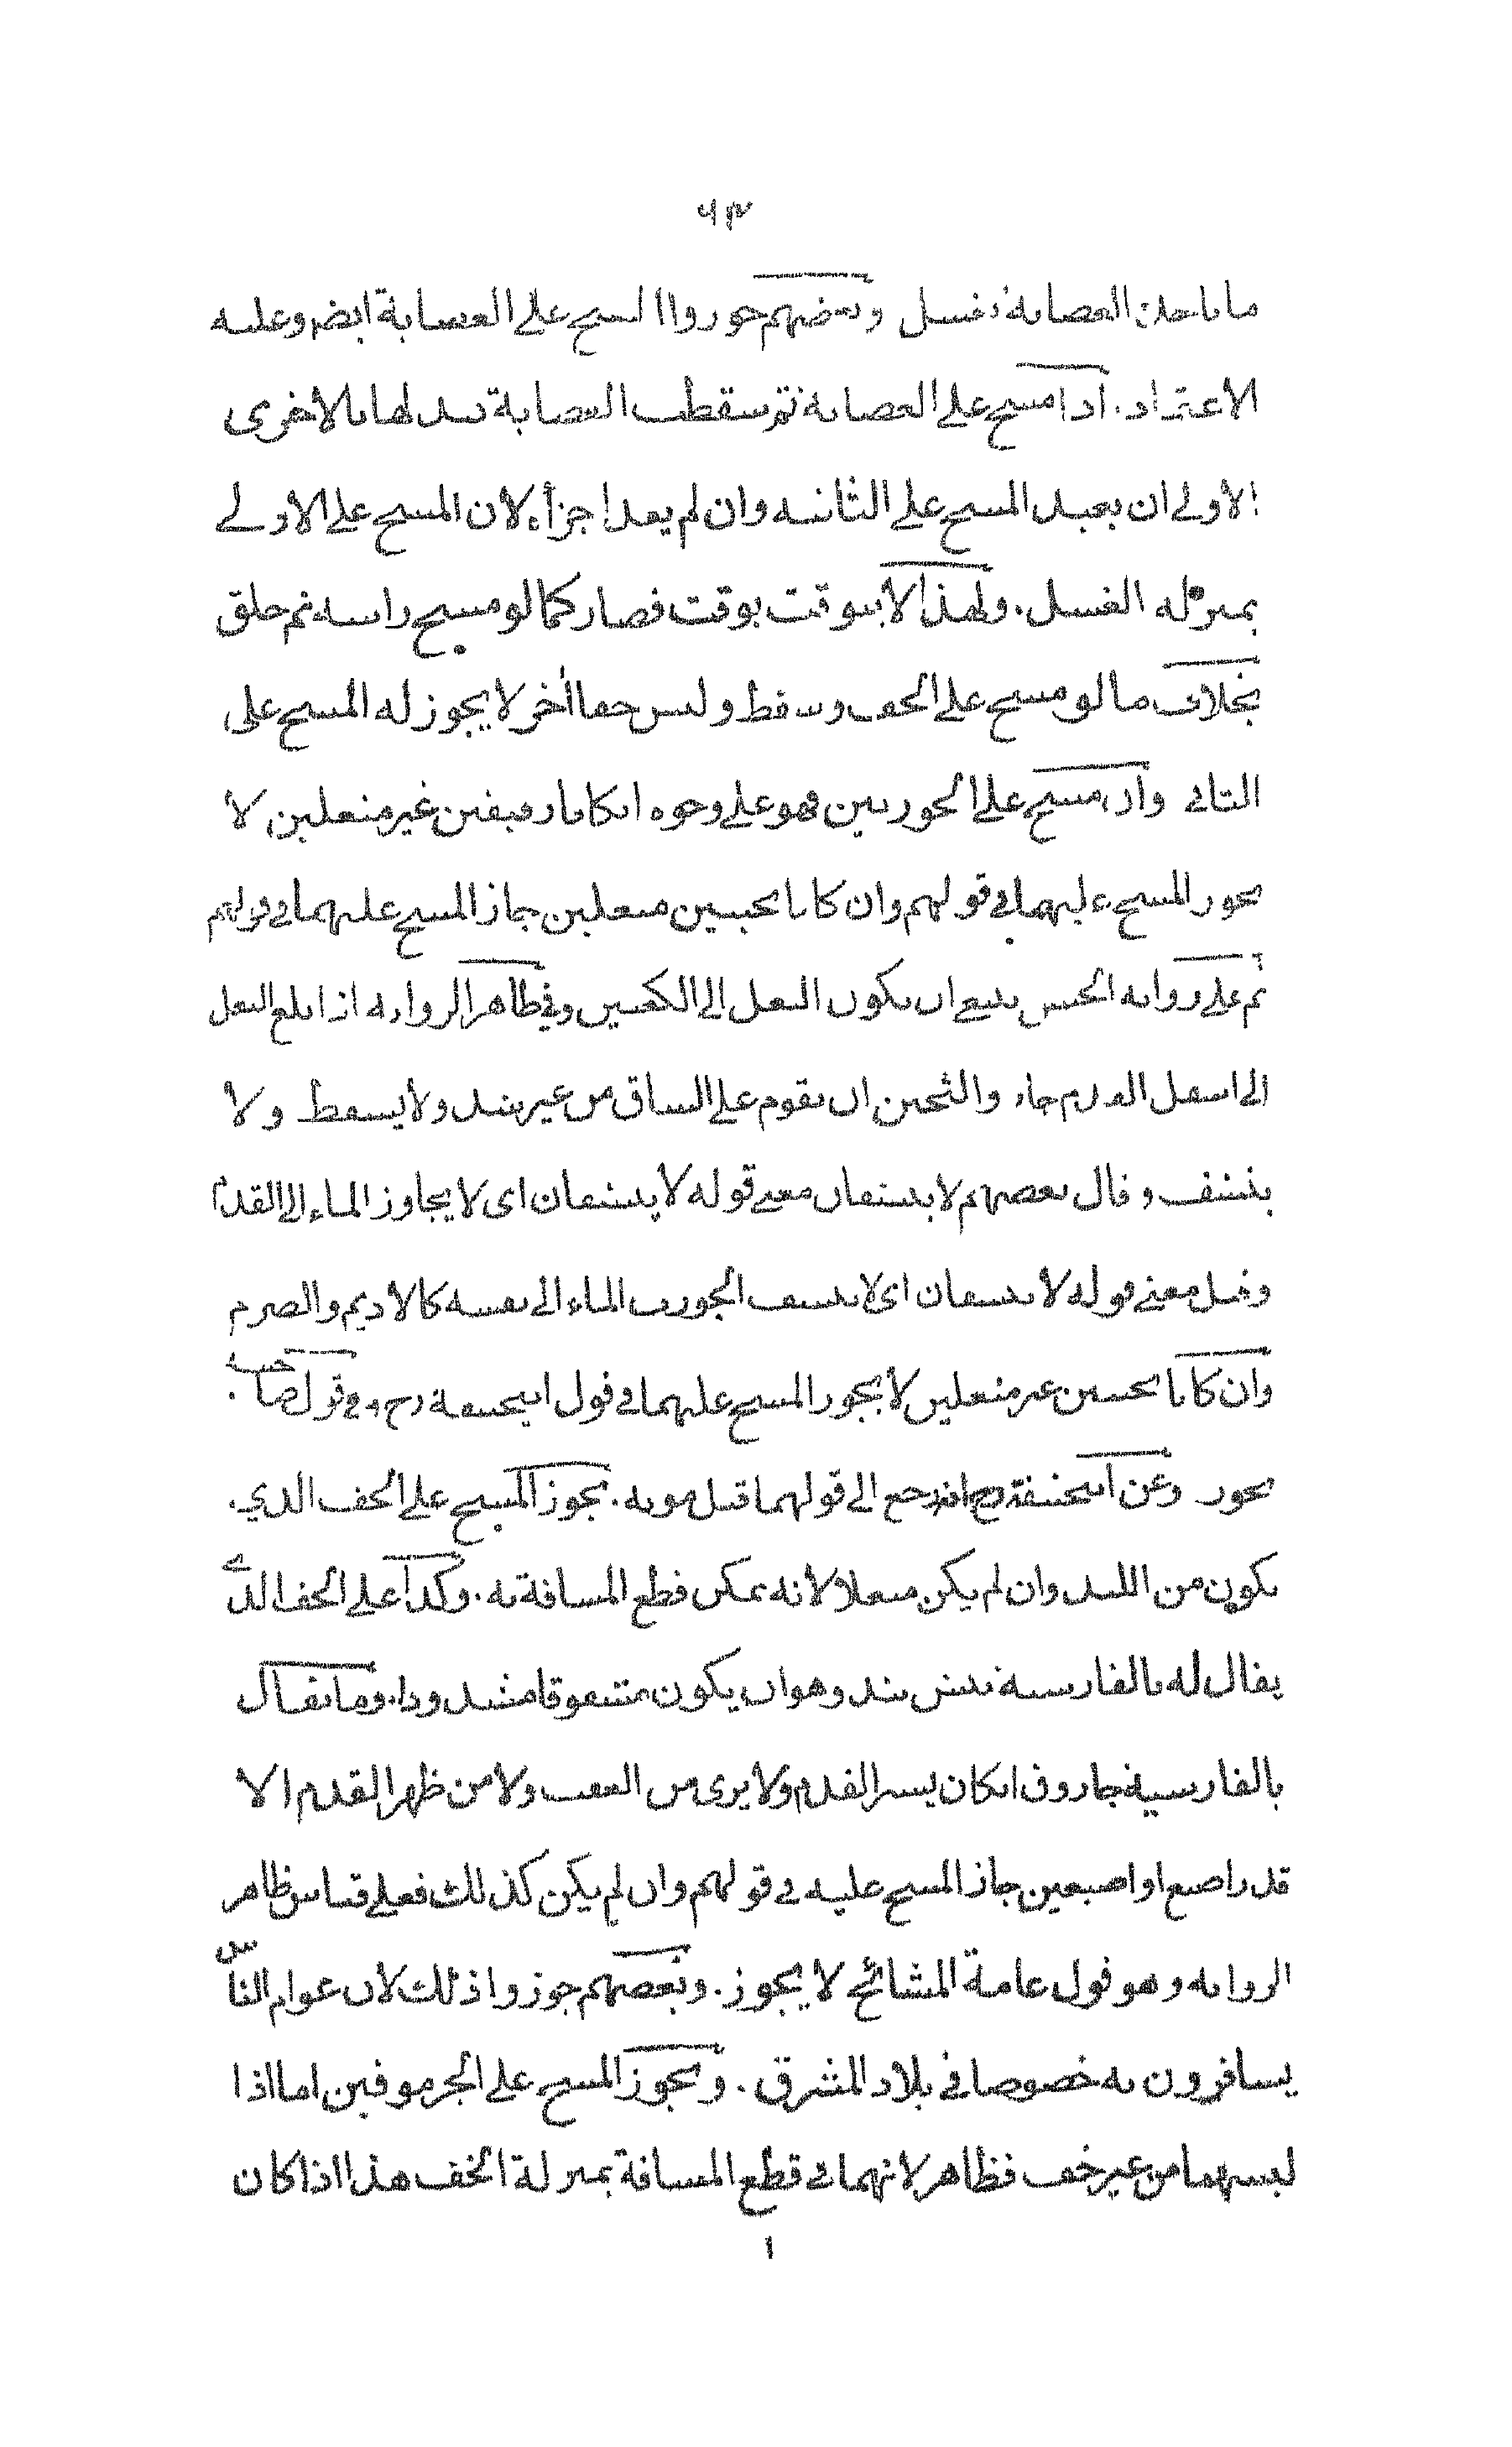 ٦٣
ما تاخذه العصابة يغسل وبعضهم جوزوا المسح على العصابة ايضا وعليه
الاعتماد. اذا مسح على العصابة ثم سقطت العصابة فبدلها بالاخرى
الاولى ان يعيد المسح على الثانية وان لم يعد اجزأه لان المسح على الاولى
بمنزلة الغسل. ولهذا لا يتوقت بوقت فصار كما لو مسح راسه ثم حلق
بخلاف ما لو مسح على الخف وسقط ولبس خفا أخر لا يجوز له المسح على
الثاني واذا مسح على الجوربين فهو على وجوه ان كانا رقيقين غير منعلين لا
يجوز المسح عليهما في قولهم وان كانا ثخينين منعلين جاز المسح عليهما في قولهم
ثم على رواية الحسن ينبغي ان يكون النعل الى الكعبين وفي ظاهر الرواية اذا بلغ النعل
الى اسفل القدم جاز والثخين ان يقوم على الساق من غير شد ولا يسقط ولا
ينشف وقال بعضهم لا ينشفان معنى قوله لا ينشفان اى لا يجاوز الماء الى القدم
وقيل معنى قوله لا ينشفان اى لا ينشف الجورب الماء الى نفسه كالاديم والصرم
وان كانا ثخينين غير منعلين لا يجوز المسح عليهما في قول ابيحنيفة رح وفي قول صاحبيه
يجوز وعن ابيحنيفة رح انه رجع الى قولهما قبل موته. يجوز المسح على الخف الذي
يكون من اللبد وان لم يكن منعلا لانه يمكن قطع المسافة به. وكذا على الخف الذي
يقال له بالفارسية پيش بند وهو ان يكون مشقوقا مشدودا. وما يقال
بالفارسية جاروق ان كان يستر القدم ولا يرى من العقب ولا من ظهر القدم الا
قدر اصبع او اصبعين جاز المسح عليه في قولهم وان لم يكن كذلك فعلى قياس ظاهر
الرواية وهو قول عامة المشائخ لا يجوز. وبعضهم جوزوا ذلك لان عوام الناس
يسافرون به خصوصا في بلاد المشرق. ويجوز المسح على الجرموقين اما اذا
لبسهما من غير خف فظاهر لانهما في قطع المسافة بمنزلة الخف هذا اذا كان
١